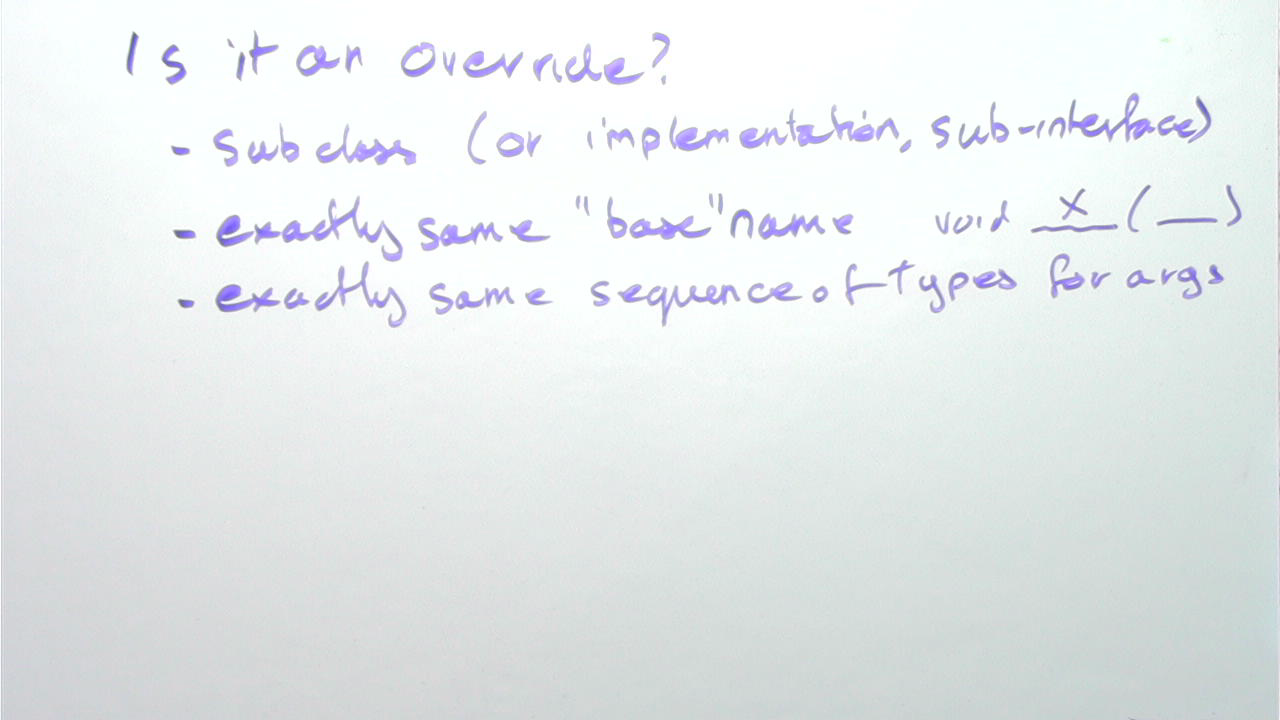 Is it an override?
- subclass (or implementation, sub-interface)
- exactly same "base" name void x ( __ )
- exactly same sequence of types for args